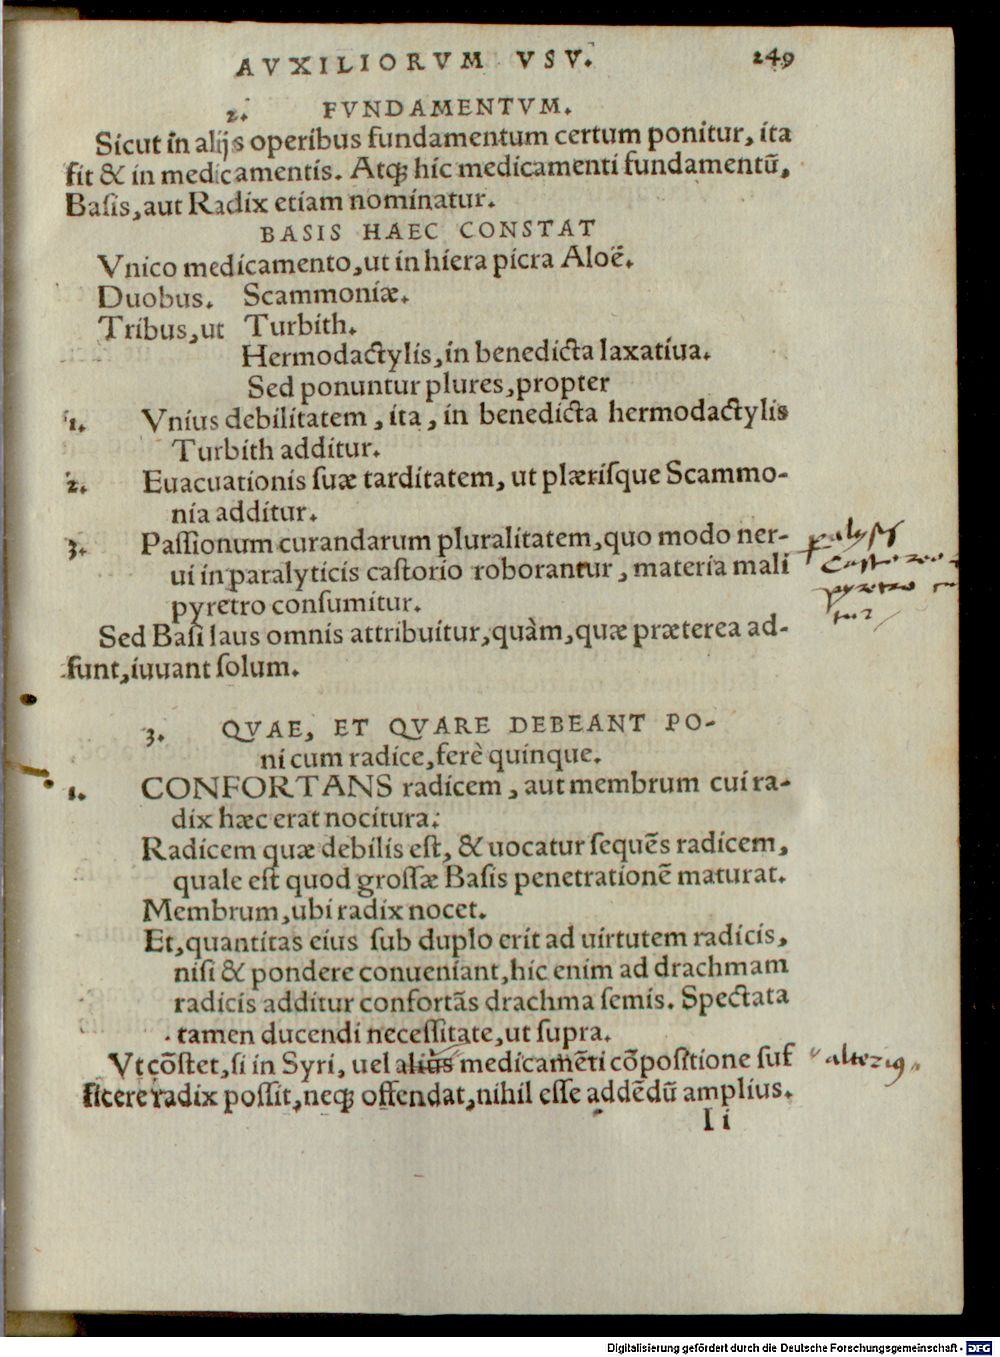 AVXILIORVM VSV. 249
2. FVNDAMENTVM.
Sicut in alijs operibus fundamentum certum ponitur, ita
fit & in medicamentis. Atq; hic medicamenti fundamentũ,
Basis, aut Radix etiam nominatur.
BASIS HAEC CONSTAT
Vnico medicamento, ut in hiera picra Aloë.
Duobus. Scammoniæ.
Tribus, ut Turbith.
Hermodactylis, in benedicta laxatiua.
Sed ponuntur plures, propter
1. Vnius debilitatem, ita, in benedicta hermodactylis
Turbith additur.
2. Euacuationis suæ tarditatem, ut plærisque Scammo-
nia additur.
3. Passionum curandarum pluralitatem, quo modo ner-
ui in paralyticis castorio roborantur, materia mali
pyretro consumitur.
Castoreo
pyretro
Sed Basi laus omnis attribuitur, quàm, quæ præterea ad-
sunt, iuuant solum.
3. QVAE, ET QVARE DEBEANT PO-
ni cum radice, ferè quinque.
1. CONFORTANS radicem, aut membrum cui ra-
dix hæc erat nocitura:
Radicem quæ debilis est, & uocatur sequẽs radicem,
quale est quod grossæ Basis penetrationẽ maturat.
Membrum, ubi radix nocet.
Et, quantitas eius sub duplo erit ad uirtutem radicis,
nisi & pondere conueniant, hic enim ad drachmam
radicis additur confortãs drachma semis. Spectata
tamen ducendi necessitate, ut supra.
Vt cõstet, si in Syri, uel alius medicamẽti cõpositione suf
ficere radix possit, neq; offendat, nihil esse addẽdũ amplius.
alterius
Ii
Digitalisierung gefördert durch die Deutsche Forschungsgemeinschaft - DFG